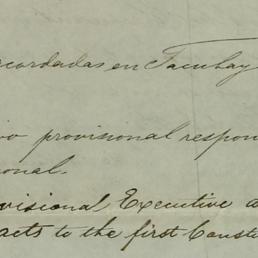 cordadas en Tacubay
vo provisional respon
ional.
visional Executive a
acts to the first Constit